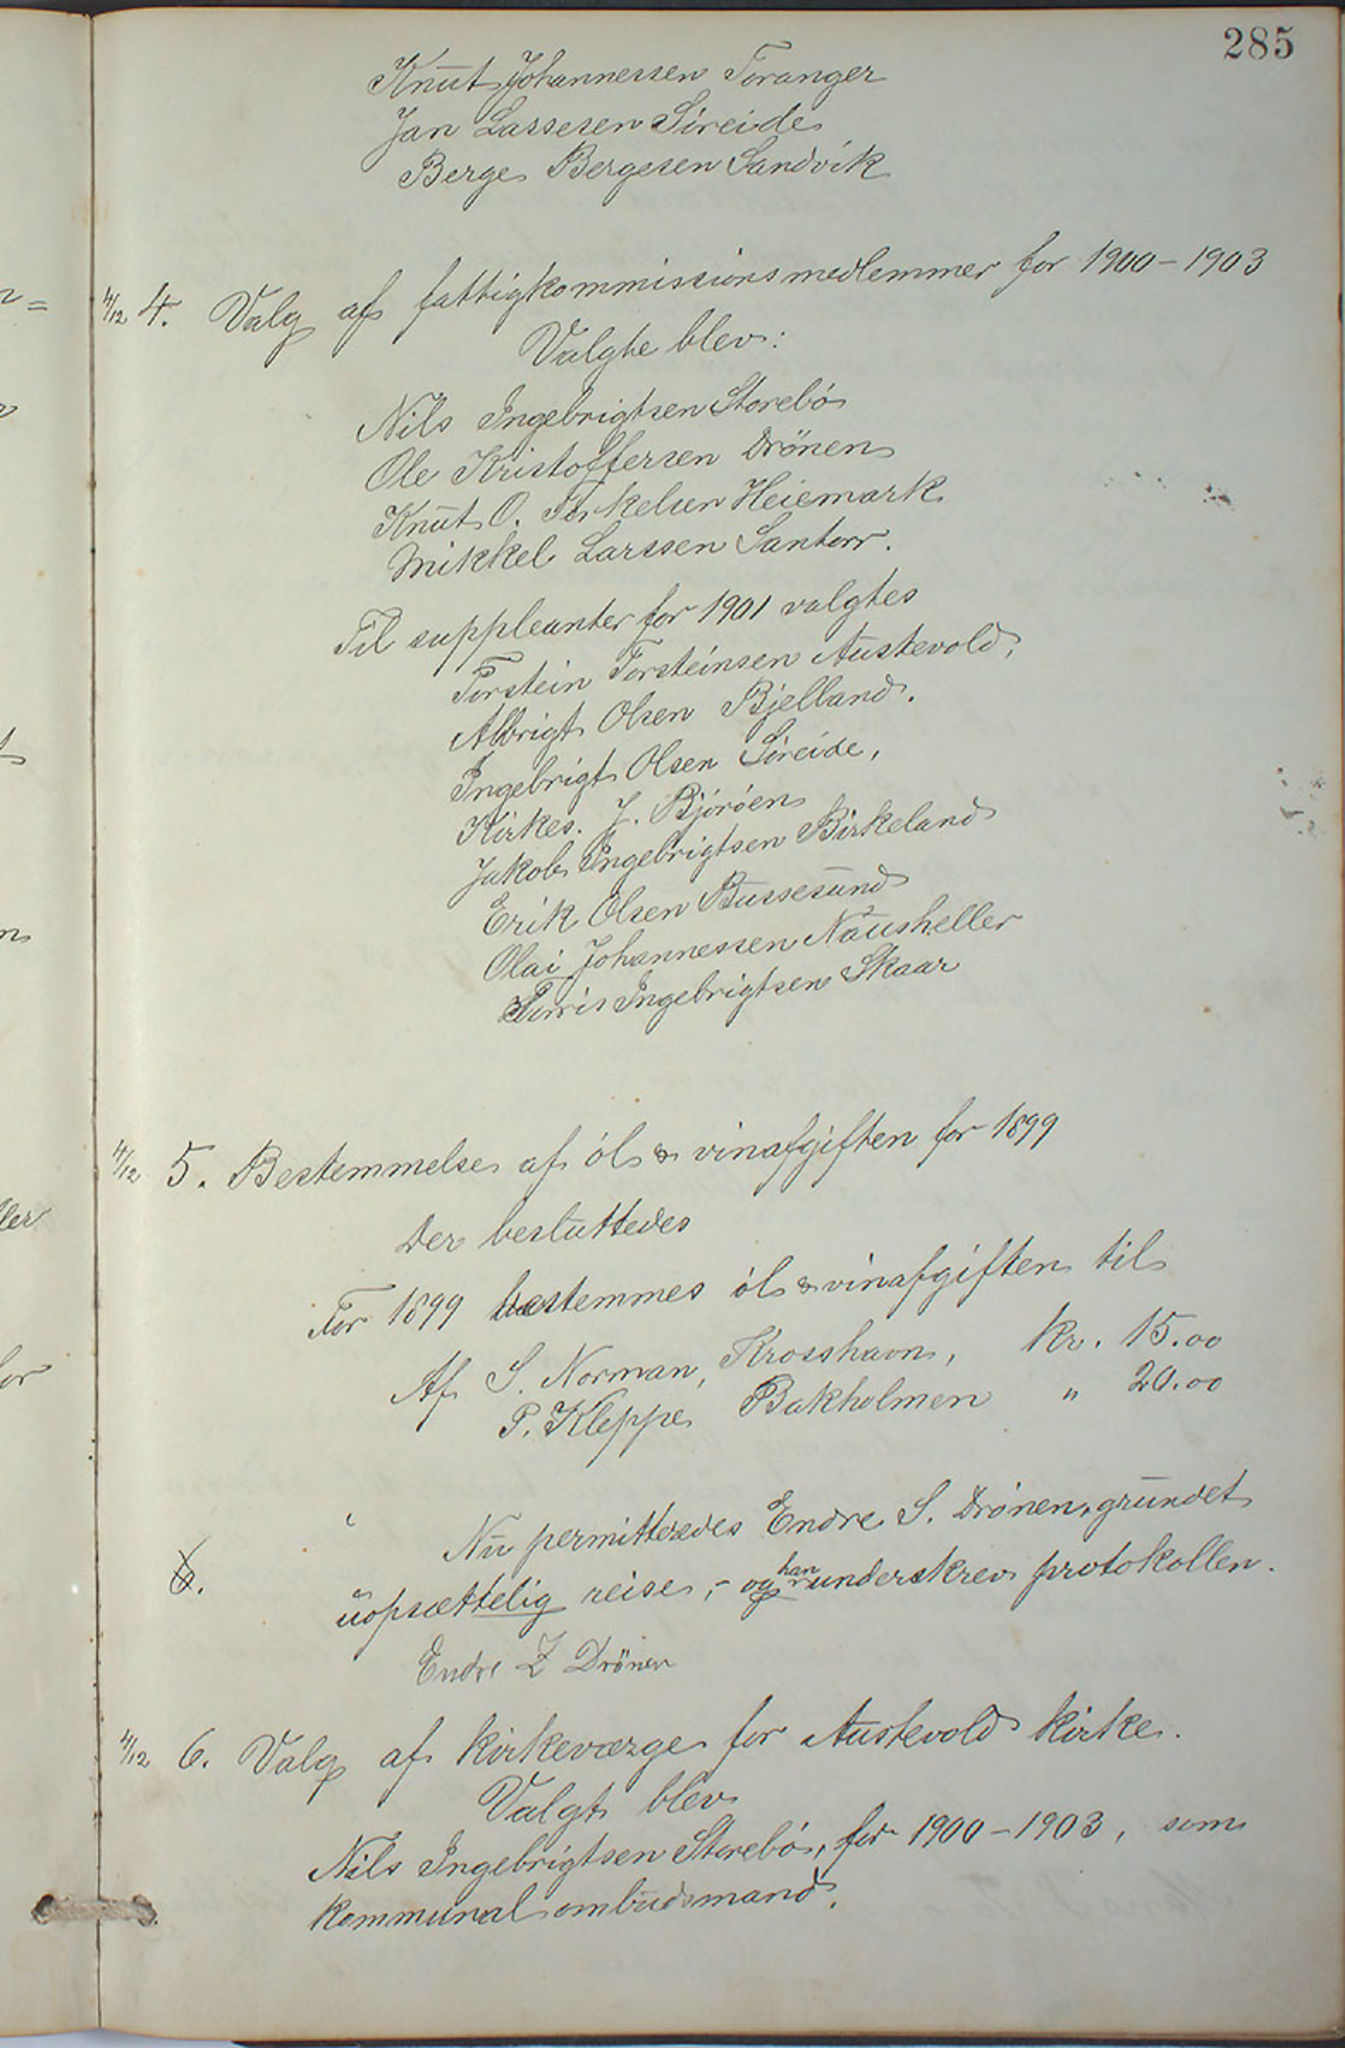 285
Knut Johannessen Toranger
Jan Lassesen Sireide
Berge Bergesen Sandvik
4/12 4. Valg af fattigkommissionsmedlemmer for 1900-1903
Valgte blev:
Nils Ingebrigtsen Storebö
Ole Kristoffersen Drönen
Knut O. Terkelsen Heiemark
Mikkel Larssen Santorr.
Til suppleanter for 1901 valgtes
Torstein Torsteinsen Austevold,
Albrigt Olsen Bjelland.
Ingebrigt Olsen Sireide,
Kirkes. J. Björöen
Jakob Ingebrigtsen Birkeland
Erik Olsen Bussesund
Olai Johannessen Nausheller
Torris Ingebrigtsen Skaar
4/12 5. Bestemmelse af öl & vinafgiften for 1899
Der besluttedes
For 1899 bestemmes öl & vinafgiften til
Af S. Norman, Krosshavn, kr. 15.00
P. Kleppe Bakholmen " 20.00
Nu permitteredes Endre S. Drönen, grundet
6. uopsættelig reise, - og han underskrev protokollen.
Endre Z Drönen
4/12 6. Valg af kirkeværge for Austevold kirke.
Valgt blev
Nils Ingebrigtsen Storebö, for 1900-1903, som
kommunal ombudsmand.